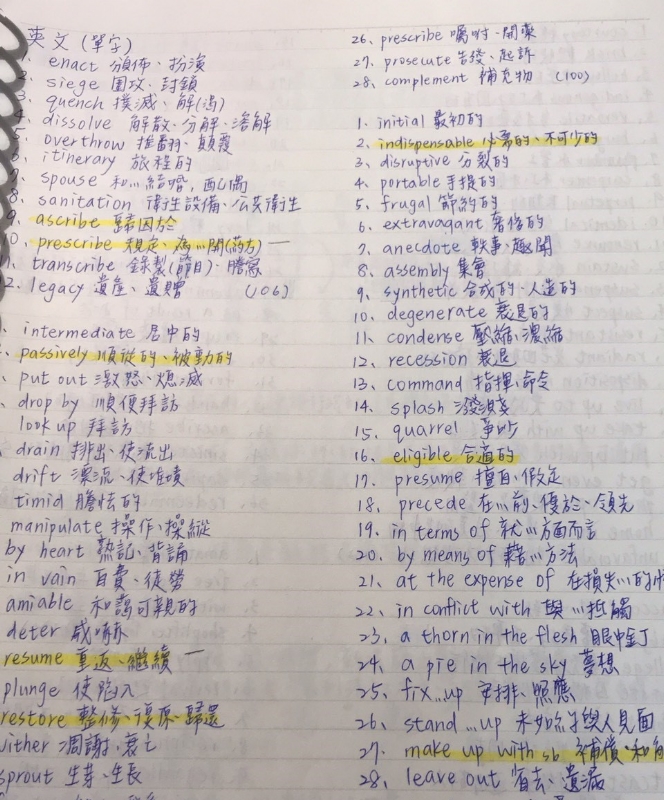 英文 (單字)
1. enact 頒佈、扮演
2. siege 圍攻、封鎖
3. quench 撲滅、解(渴)
4. dissolve 解散、分解、溶解
5. overthrow 推翻、顛覆
6. itinerary 旅程的
7. spouse 和…結婚，配偶
8. sanitation 衛生設備、公共衛生
9. ascribe 歸因於
10. prescribe 規定、為…開(藥方)
11. transcribe 錄製(節目)、謄寫
12. legacy 遺產、遺贈 (106)
intermediate 居中的
passively 順從的、被動的
put out 激怒、熄滅
drop by 順便拜訪
look up 拜訪
drain 排出、使流出
drift 漂流、使堆積
timid 膽怯的
manipulate 操作、操縱
by heart 熟記、背誦
in vain 白費、徒勞
amiable 和藹可親的
deter 威嚇
resume 重返、繼續
plunge 使陷入
restore 整修、復原、歸還
wither 凋謝、衰亡
sprout 生芽、生長
26、prescribe 囑咐、開藥
27、prosecute 告發、起訴
28、complement 補充物 (100)
1. initial 最初的
2. indispensable 必需的、不可少的
3. disruptive 分裂的
4. portable 手提的
5. frugal 節約的
6. extravagant 奢侈的
7. anecdote 軼事、趣聞
8. assembly 集會
9. synthetic 合成的、人造的
10. degenerate 衰退的
11. condense 壓縮、濃縮
12. recession 衰退
13. command 指揮、命令
14. splash 潑濺
15. quarrel 爭吵
16. eligible 合適的
17. presume 擅自、假定
18. precede 在…前、優於、領先
19. in terms of 就…方面而言
20. by means of 藉…方法
21. at the expense of 在損失…的
22. in conflict with 與…抵觸
23. a thorn in the flesh 眼中釘
24. a pie in the sky 夢想
25. fix...up 安排、照應
26. stand...up 未如約與人見面
27. make up with sb 補償、和
28. leave out 省去、遺漏